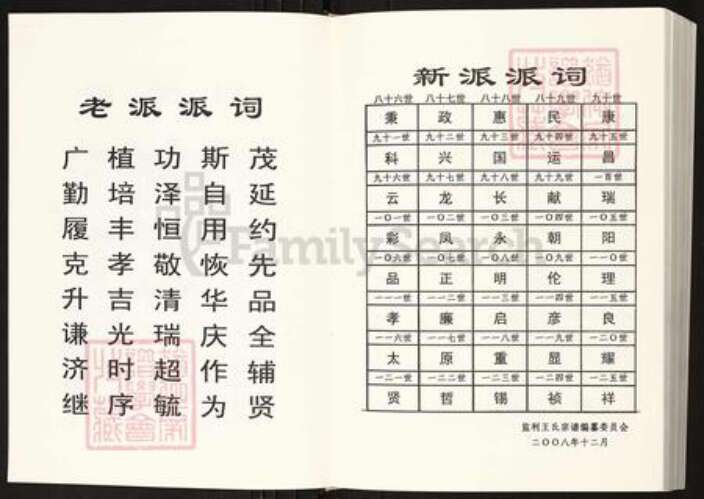 老派派词
广植功斯茂
勤培泽自延
履丰恒用约
克孝敬恢先
升吉清华品
谦光瑞庆全
济时超作辅
继序毓为贤
新派派词
八十六世 八十七世 八十八世 八十九世 九十世
秉 政 惠 民 康
九十一世 九十二世 九十三世 九十四世 九十五世
科 兴 国 运 昌
九十六世 九十七世 九十八世 九十九世 一百世
云 龙 长 献 瑞
一〇一世 一〇二世 一〇三世 一〇四世 一〇五世
彩 凤 永 朝 阳
一〇六世 一〇七世 一〇八世 一〇九世 一一〇世
品 正 明 伦 理
一一一世 一一二世 一一三世 一一四世 一一五世
孝 廉 启 彦 良
一一六世 一一七世 一一八世 一一九世 一二〇世
太 原 重 显 耀
一二一世 一二二世 一二三世 一二四世 一二五世
贤 哲 锡 祯 祥
监利王氏宗谱编纂委员会
二〇〇八年十二月
FamilySearch